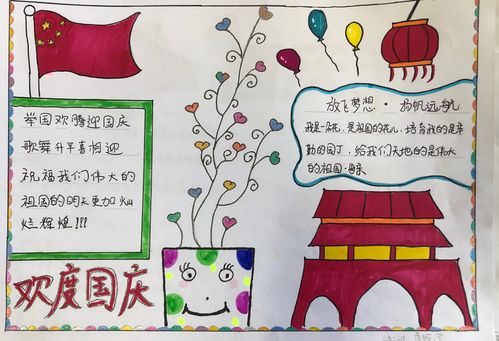 举国欢腾迎国庆
歌舞升平喜相迎
祝福我们伟大的
祖国的明天更加灿
烂辉煌!!!
欢度国庆
放飞梦想·扬帆远航
我是一朵花,是祖国的花儿,培育我的是辛
勤的园丁,给我们天地的是伟大
的祖国·母亲